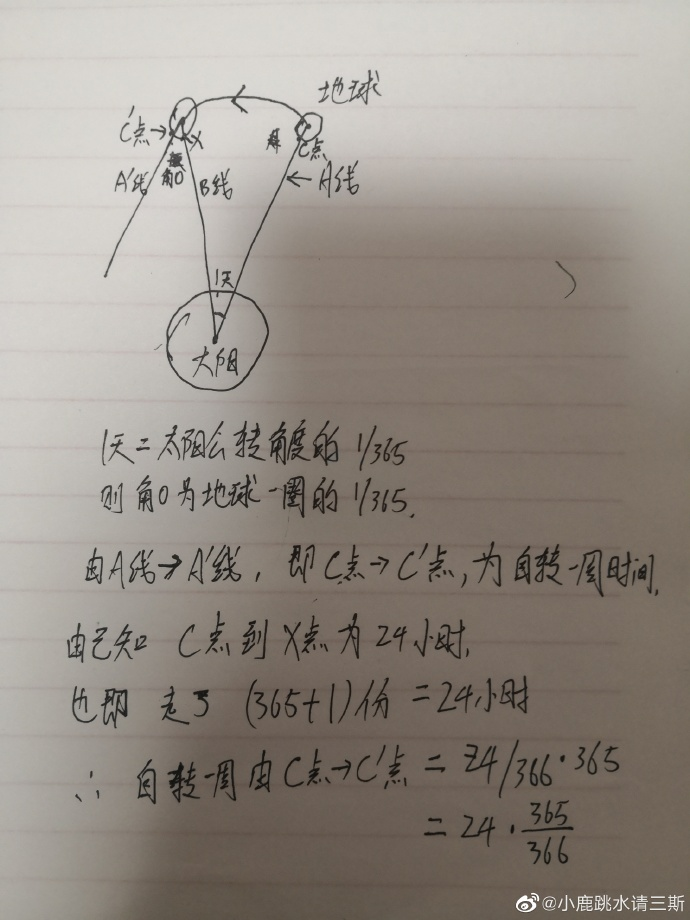 地球
C'点→
X
C点
A'线
角O
B线
←A线
1天
太阳
1天=太阳公转角度的 1/365
则角O为地球一圈的 1/365.
由A线→A'线，即C点→C'点，为自转一周时间.
由已知 C点到X点为24小时.
也即 走了 (365+1)份 = 24小时
∴ 自转一周由C点→C'点 = 24/366·365
= 24·365/366
@小鹿跳水请三斯